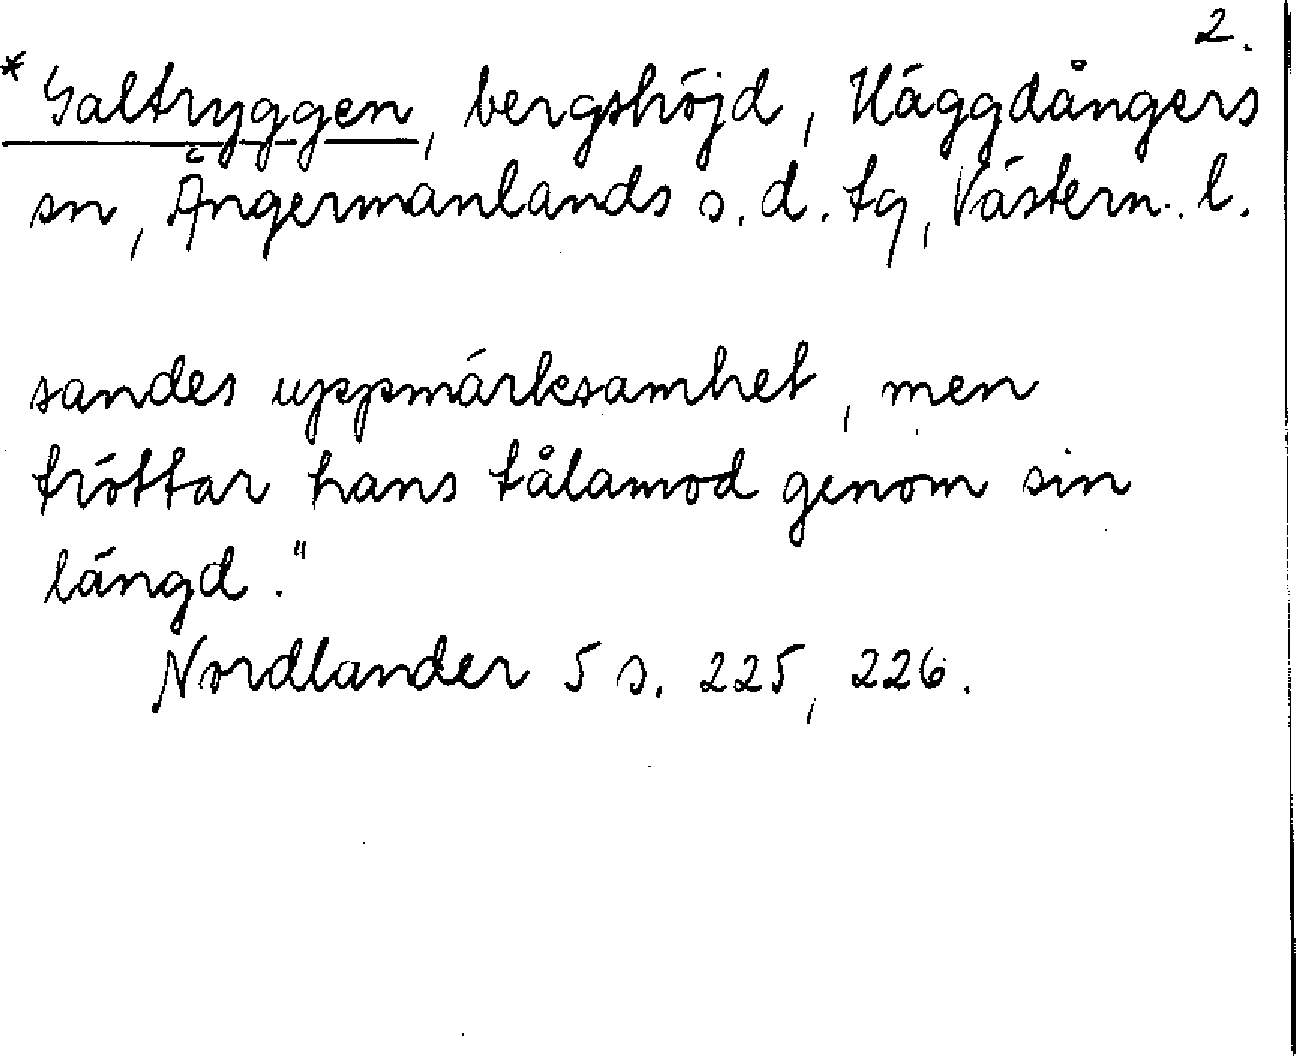 2.
* Galtryggen, bergshöjd, Häggdångers
sn, Ångermanlands s. d. tg, Västern. l.
sandes uppmärksamhet, men
tröttar hans tålamod genom sin
längd."
Nordlander 5 s. 225, 226.